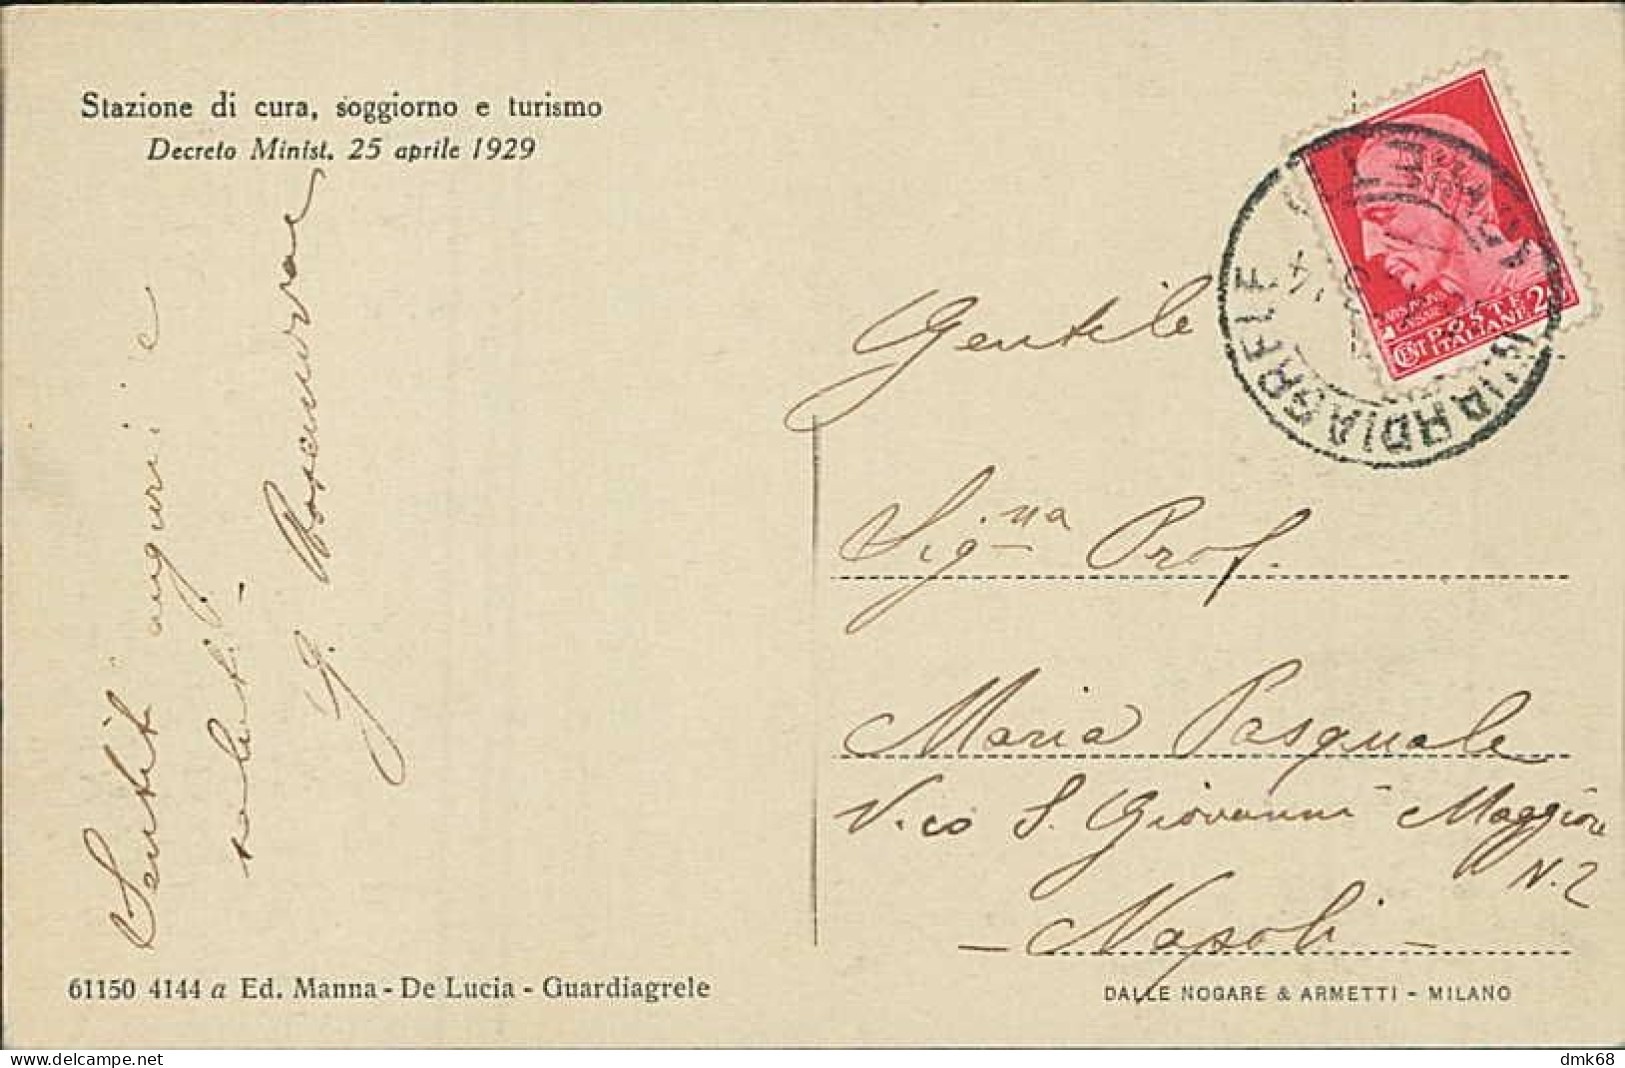 Stazione di cura, soggiorno e turismo
Decreto Minist. 25 aprile 1929
Sentiti auguri e
saluti -
G.
Gentile
Sig.na Prof.
Maria Pasquale
V.co S. Giovanni Maggiore
N. 2
- Napoli -
GUARDIAGRELE
POSTE
ITALIANE
CENT
61150 4144 a Ed. Manna - De Lucia - Guardiagrele
DALLE NOGARE & ARMETTI - MILANO
delcampe.net
dmk68